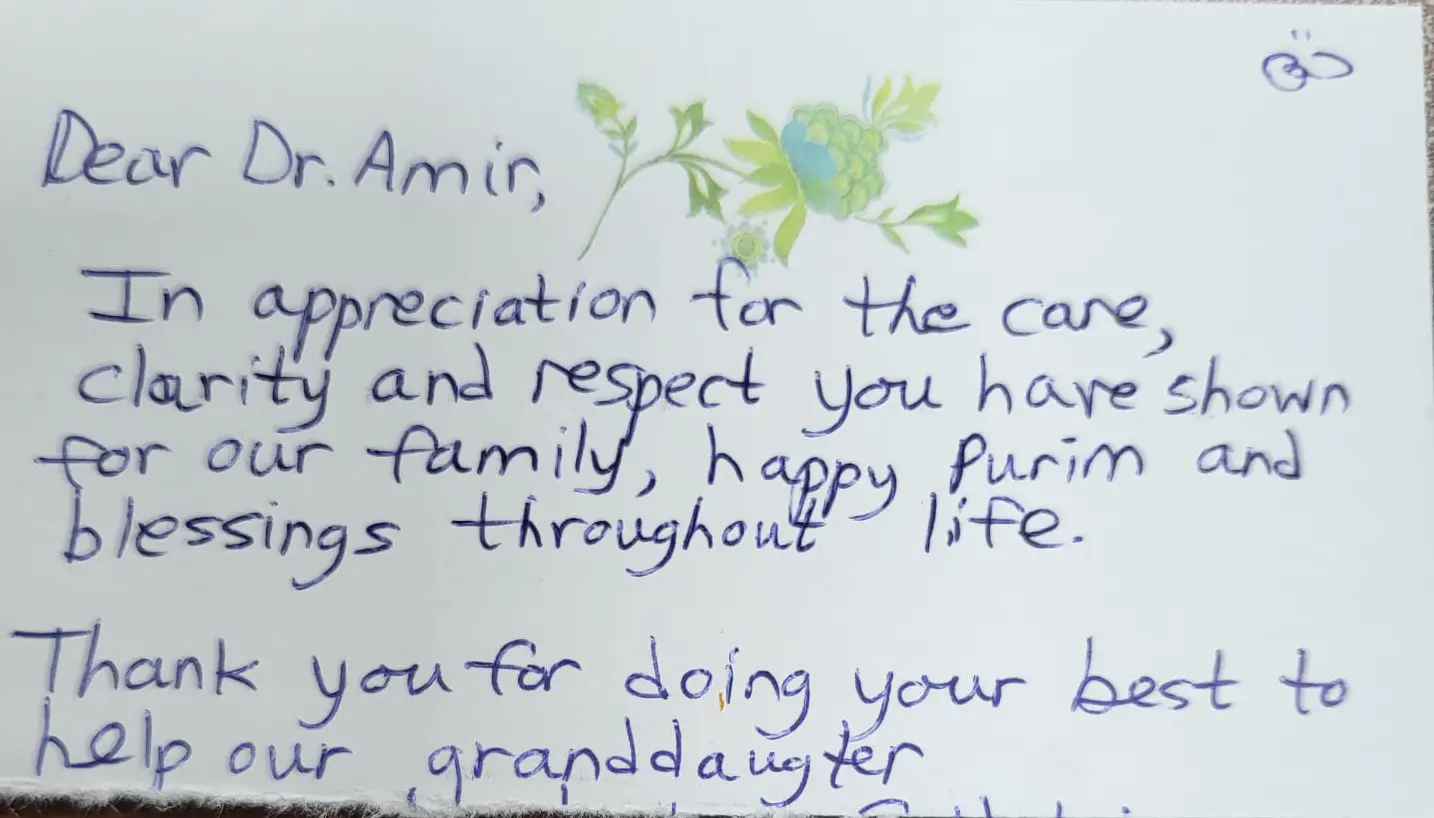 בס"ד
Dear Dr. Amir,
In appreciation for the care,
clarity and respect you have shown
for our family, happy Purim and
blessings throughout life.
Thank you for doing your best to
help our granddaugter